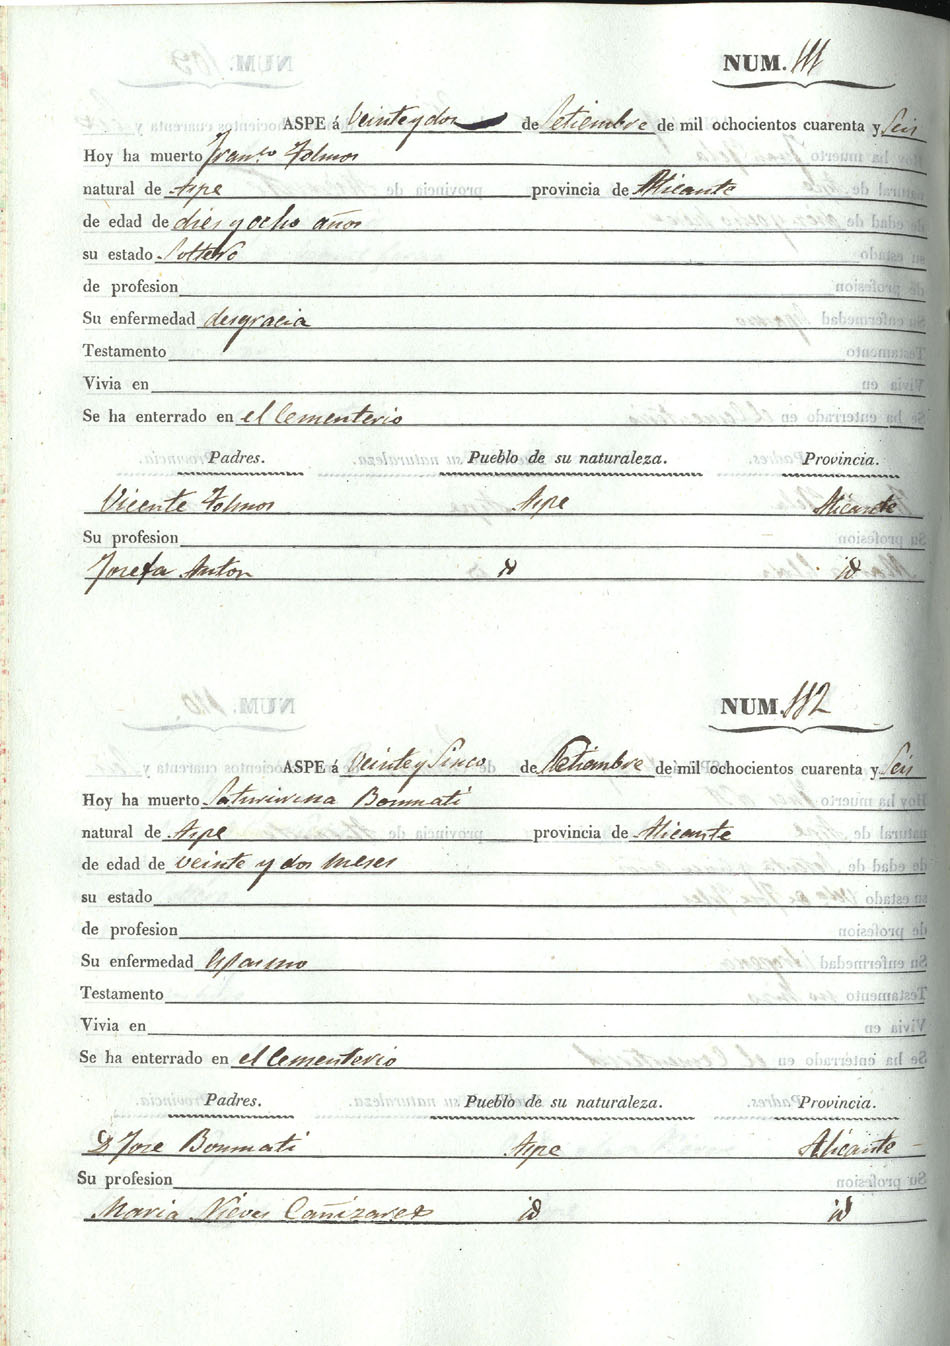 NUM. 111
ASPE á Veinte y dos de Setiembre de mil ochocientos cuarenta y Seis
Hoy ha muerto Fran.co Tolmos
natural de Aspe provincia de Alicante
de edad de dies y ocho años
su estado Soltero
de profesion
Su enfermedad desgracia
Testamento
Vivia en
Se ha enterrado en el Cementerio
Padres. Pueblo de su naturaleza. Provincia.
Vicente Tolmos Aspe Alicante
Su profesion
Josefa Anton id id
NUM. 112
ASPE á Veinte y Sinco de Setiembre de mil ochocientos cuarenta y Seis
Hoy ha muerto Bonmati
natural de Aspe provincia de Alicante
de edad de veinte y dos meses
su estado
de profesion
Su enfermedad Espasmo
Testamento
Vivia en
Se ha enterrado en el Cementerio
Padres. Pueblo de su naturaleza. Provincia.
D Jose Bonmati Aspe Alicante
Su profesion
Maria Nieves Cañizares id id